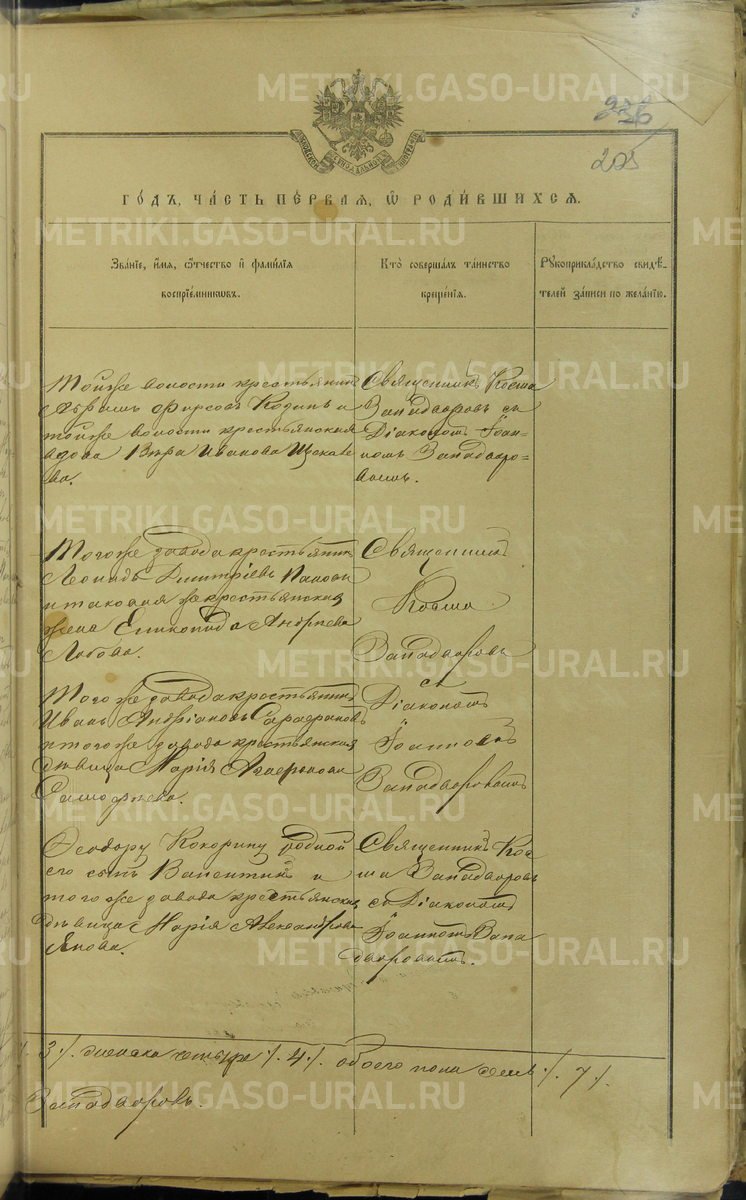 METRIKI.GASO-URAL.RU
236
203
ГО́ДЪ, ЧА́СТЬ ПЕ́РВАЯ, Ѡ҆ РОДИ́ВШИХСѦ.
Зва́нїе, и҆́мѧ, ѻ҆́тчество и҆ фами́лїѧ
воспрїе́мниковъ.
Кто̀ соверша́лъ та́инство
креще́нїѧ.
Рꙋкоприкла́дство свидѣ́-
телей за́писи по жела́нїю.
Тойже волости крестьянинъ
Абрамъ Фирсовъ Кодинъ и
тойже волости крестьянская
вдова Вѣра Иванова Щекале
ва.
Священникъ Косма
Западворовъ съ
Діакономъ Іоан-
номъ Западворо-
вымъ.
Того же завода крестьянинъ
Леонидъ Дмитріевъ Пановъ
и таковая же крестьянская
жена Епихопида Андреева
Лобова.
Священникъ
Косма
Западворовъ
съ
Діакономъ
Іоанномъ
Западворовымъ
Того же завода крестьянинъ
Иванъ Андріановъ Сарафановъ
и того же завода крестьянская
дѣвица Марія Агафонова
Ѳеодору Кокорину родной
его сынъ Валентинъ и
того же завода крестьянская
дѣвица Марія Александрова
Япова.
Священникъ Кос
ма Западворовъ
съ Діакономъ
Іоанномъ Запа
дворовымъ.
/. 3 /. женска четыре /. 4 /. обоего пола семь /. 7 /.
Западворовъ.